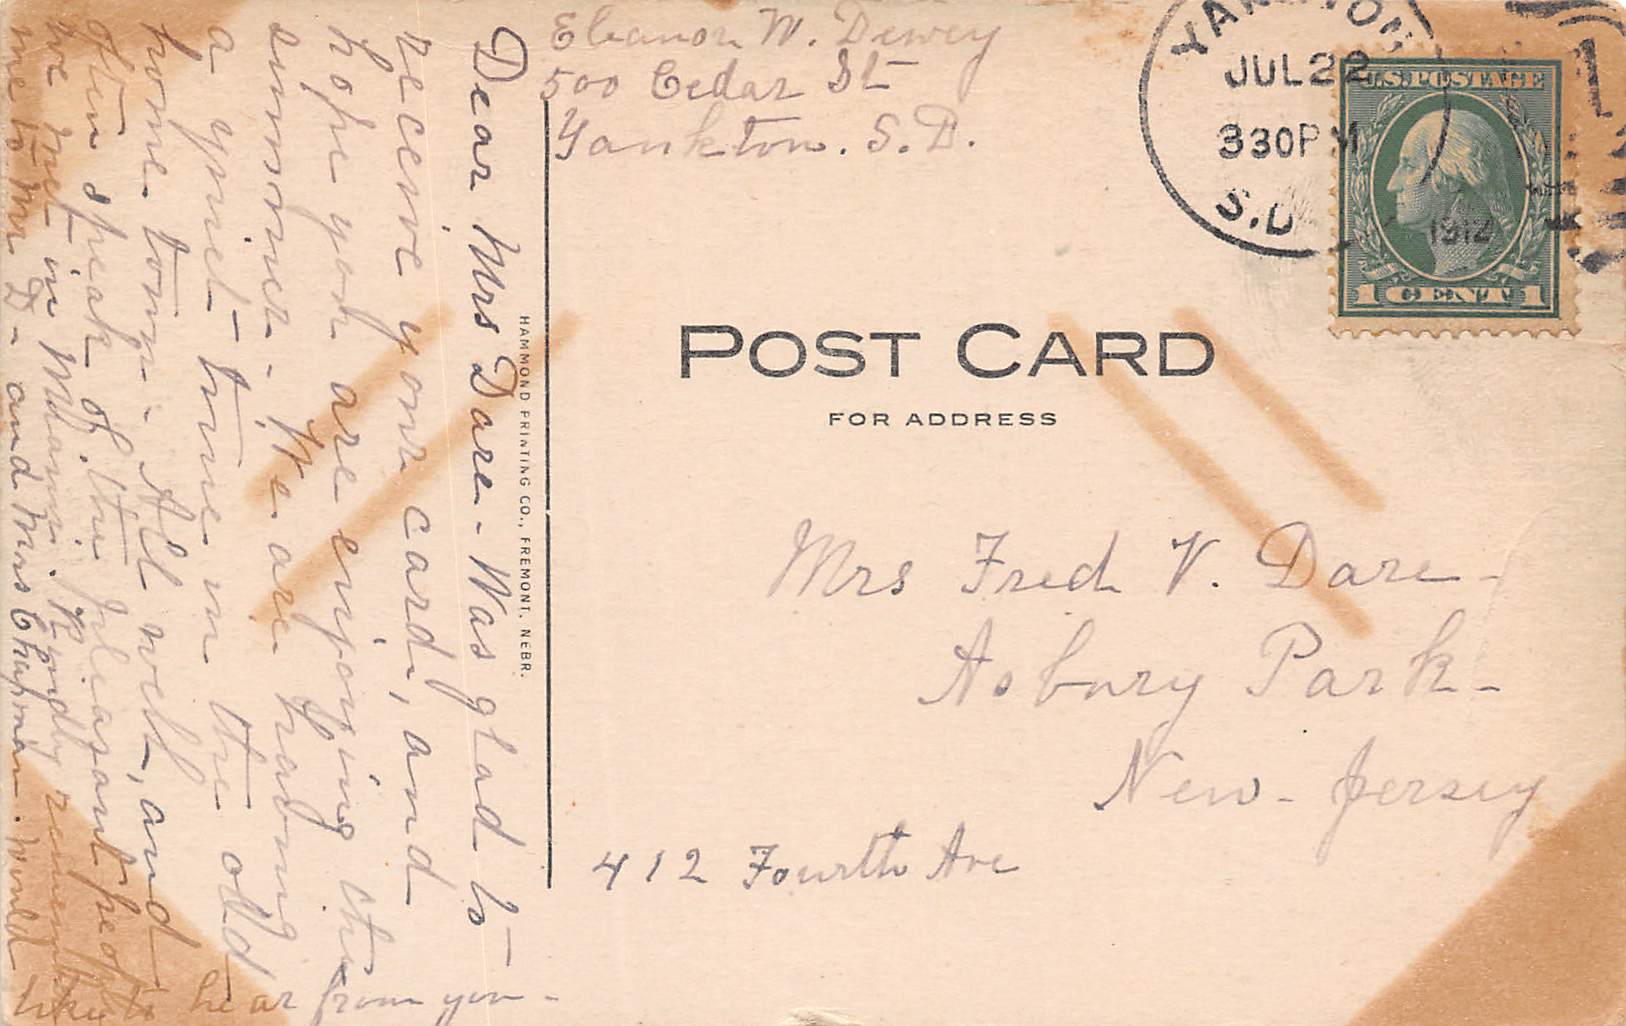 Eleanor W. Dewey
500 Cedar St
Yankton. S.D.
YANKTON
JUL 22
330PM
S.D.
1912
U.S. POSTAGE
1 CENT 1
POST CARD
FOR ADDRESS
Mrs Fred V. Dare -
Asbury Park -
New - Jersey
412 Fourth Ave
HAMMOND PRINTING CO., FREMONT, NEBR.
Dear Mrs Dare - Was glad to
receive your card, and
hope you are enjoying the
summer - We are having
a quiet time in the old
home town - All well, and
often speak of the pleasant people
we met in Miami. Kindly remember
me to Mr D - and Mrs Chapman. Would
like to hear from you -